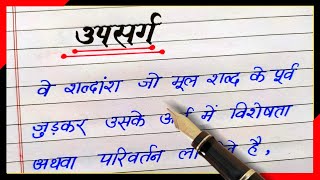 उपसर्ग
वे शब्दांश जो मूल शब्द के पूर्व
जुड़कर उसके में विशेषता
अथवा परिवर्तन है,